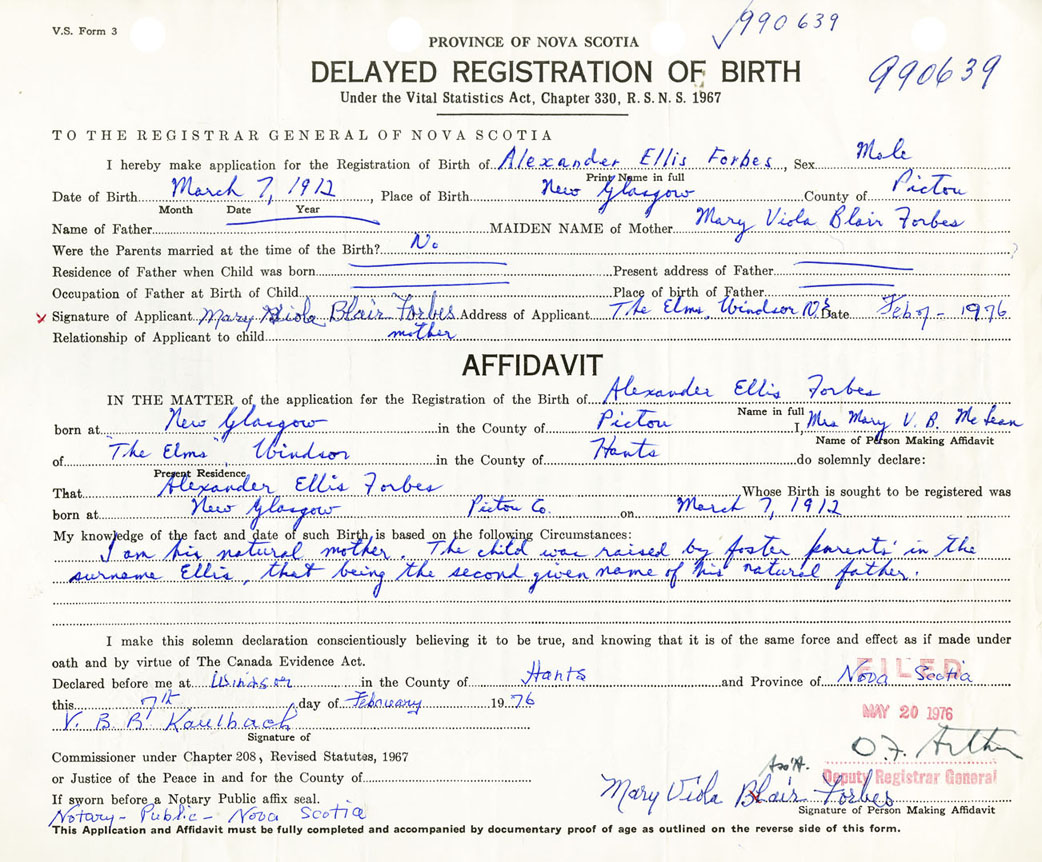 V.S. Form 3
990639
PROVINCE OF NOVA SCOTIA
990639
DELAYED REGISTRATION OF BIRTH
Under the Vital Statistics Act, Chapter 330, R.S.N.S. 1967
TO THE REGISTRAR GENERAL OF NOVA SCOTIA
I hereby make application for the Registration of Birth of Alexander Ellis Forbes, Sex Male
Print Name in full
Date of Birth March 7, 1912, Place of Birth New Glasgow County of Pictou
Month Date Year
Name of Father MAIDEN NAME of Mother Mary Viola Blair Forbes
Were the Parents married at the time of the Birth? No
Residence of Father when Child was born Present address of Father
Occupation of Father at Birth of Child Place of birth of Father
Signature of Applicant Mary Viola Blair Forbes Address of Applicant The Elms, Windsor N.S. Date Feb 7 - 1976
Relationship of Applicant to child mother
AFFIDAVIT
IN THE MATTER of the application for the Registration of the Birth of Alexander Ellis Forbes
Name in full
born at New Glasgow in the County of Pictou I, Mrs Mary V. B. McLean
Name of Person Making Affidavit
of "The Elms", Windsor in the County of Hants do solemnly declare:
Present Residence
That Alexander Ellis Forbes Whose Birth is sought to be registered was
born at New Glasgow Pictou Co. on March 7, 1912
My knowledge of the fact and date of such Birth is based on the following Circumstances:
I am his natural mother. The child was raised by foster parents in the
surname Ellis, that being the second given name of his natural father.
I make this solemn declaration conscientiously believing it to be true, and knowing that it is of the same force and effect as if made under
oath and by virtue of The Canada Evidence Act.
FILED
Declared before me at Windsor in the County of Hants and Province of Nova Scotia
this 7th day of February 1976
MAY 20 1976
V. B. B. Kaulbach
Signature of
Commissioner under Chapter 208, Revised Statutes, 1967
Ass't. Deputy Registrar General
or Justice of the Peace in and for the County of
Mary Viola Blair Forbes
If sworn before a Notary Public affix seal.
Signature of Person Making Affidavit
Notary - Public - Nova Scotia
This Application and Affidavit must be fully completed and accompanied by documentary proof of age as outlined on the reverse side of this form.